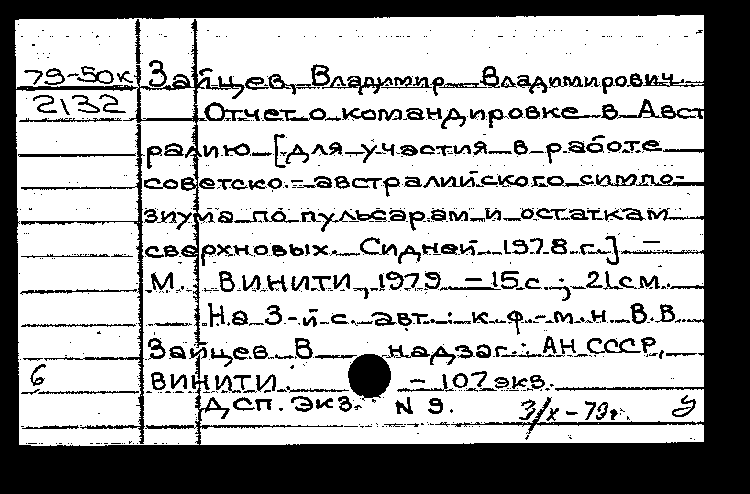 79-50к Зайцев, Владимир Владимирович.
2132 Отчет о командировке в Авст
ралию [для участия в работе
советско-австралийского симпо-
зиума по пульсарам и остаткам
сверхновых. Сидней 1978 г.] —
М. ВИНИТИ, 1979 — 15 с.; 21 см.
На 3-й с. авт.: к. ф.-м. н. В.В
Зайцев В надзаг.: АН СССР,
6 ВИНИТИ. — 107 экв.
ДСП. Экз. N 9. 3/X-79г. У